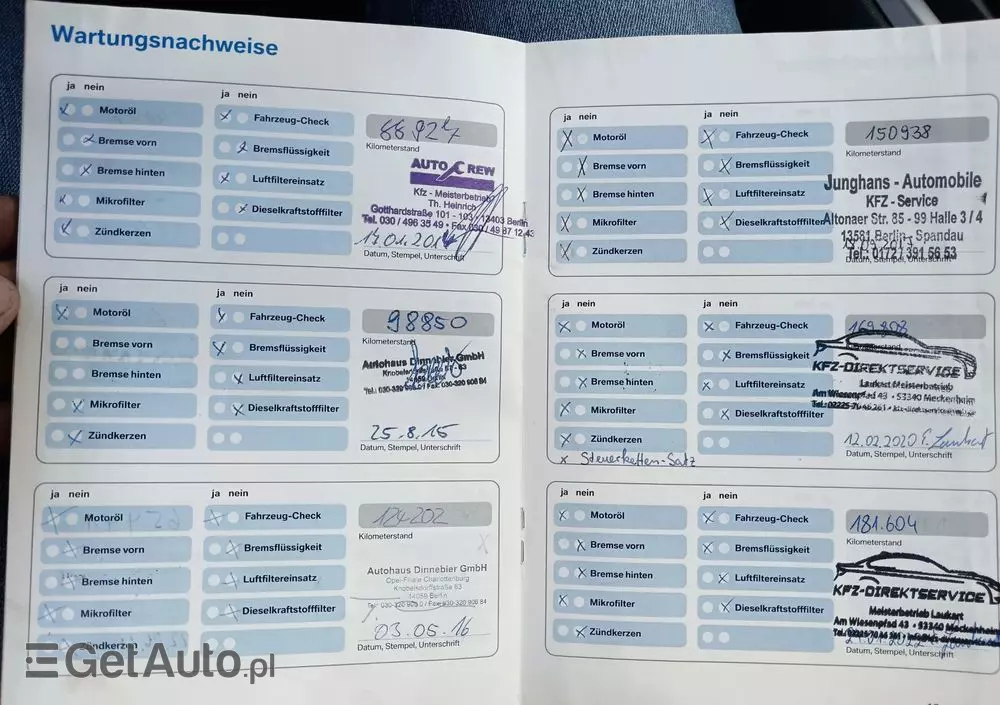 Wartungsnachweise
ja nein
ja nein
Motoröl
Fahrzeug-Check
Bremse vorn
Bremsflüssigkeit
Bremse hinten
Luftfiltereinsatz
Mikrofilter
Dieselkraftstofffilter
Zündkerzen
88924
Kilometerstand
AUTO CREW
Kfz - Meisterbetrieb
Th. Heinrich
Gotthardstraße 101 - 103 · 13403 Berlin
Tel. 030 / 496 35 49 · Fax 030 / 49 87 12 43
17.01.2014
Datum, Stempel, Unterschrift
ja nein
ja nein
Motoröl
Fahrzeug-Check
Bremse vorn
Bremsflüssigkeit
Bremse hinten
Luftfiltereinsatz
Mikrofilter
Dieselkraftstofffilter
Zündkerzen
98850
Kilometerstand
Autohaus Dinnebier GmbH
25.8.15
Datum, Stempel, Unterschrift
ja nein
ja nein
Motoröl
Fahrzeug-Check
Bremse vorn
Bremsflüssigkeit
Bremse hinten
Luftfiltereinsatz
Mikrofilter
Dieselkraftstofffilter
Zündkerzen
124202
Kilometerstand
Autohaus Dinnebier GmbH
Opel-Filiale Charlottenburg
Knobelsdorffstraße 63
14059 Berlin
Tel.: 030-320 909 0 / Fax 030-320 906 84
03.05.16
Datum, Stempel, Unterschrift
ja nein
ja nein
Motoröl
Fahrzeug-Check
Bremse vorn
Bremsflüssigkeit
Bremse hinten
Luftfiltereinsatz
Mikrofilter
Dieselkraftstofffilter
Zündkerzen
150938
Kilometerstand
Junghans - Automobile
KFZ - Service
Altonaer Str. 85 - 99 Halle 3 / 4
13581 Berlin - Spandau
Tel.: 0172 / 391 56 53
Datum, Stempel, Unterschrift
ja nein
ja nein
Motoröl
Fahrzeug-Check
Bremse vorn
Bremsflüssigkeit
Bremse hinten
Luftfiltereinsatz
Mikrofilter
Dieselkraftstofffilter
Zündkerzen
x Steuerketten-Satz
169.808
KFZ-DIREKTSERVICE
Laukart Meisterbetrieb
Am Wiesenpfad 43 · 53340 Meckenheim
12.02.2020
Datum, Stempel, Unterschrift
ja nein
ja nein
Motoröl
Fahrzeug-Check
Bremse vorn
Bremsflüssigkeit
Bremse hinten
Luftfiltereinsatz
Mikrofilter
Dieselkraftstofffilter
Zündkerzen
181.604
Kilometerstand
KFZ-DIREKTSERVICE
Meisterbetrieb Laukart
Am Wiesenpfad 43 · 53340 Meckenheim
Datum, Stempel, Unterschrift
GetAuto.pl